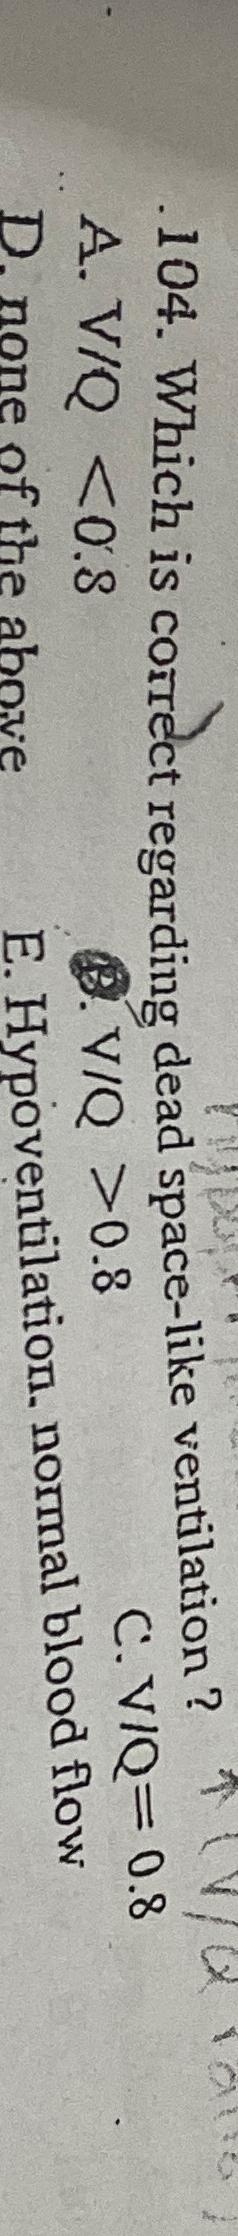 104. Which is correct regarding dead space-like ventilation ?
A. V/Q <0.8 B. V/Q >0.8 C. V/Q= 0.8
D. none of the above E. Hypoventilation. normal blood flow